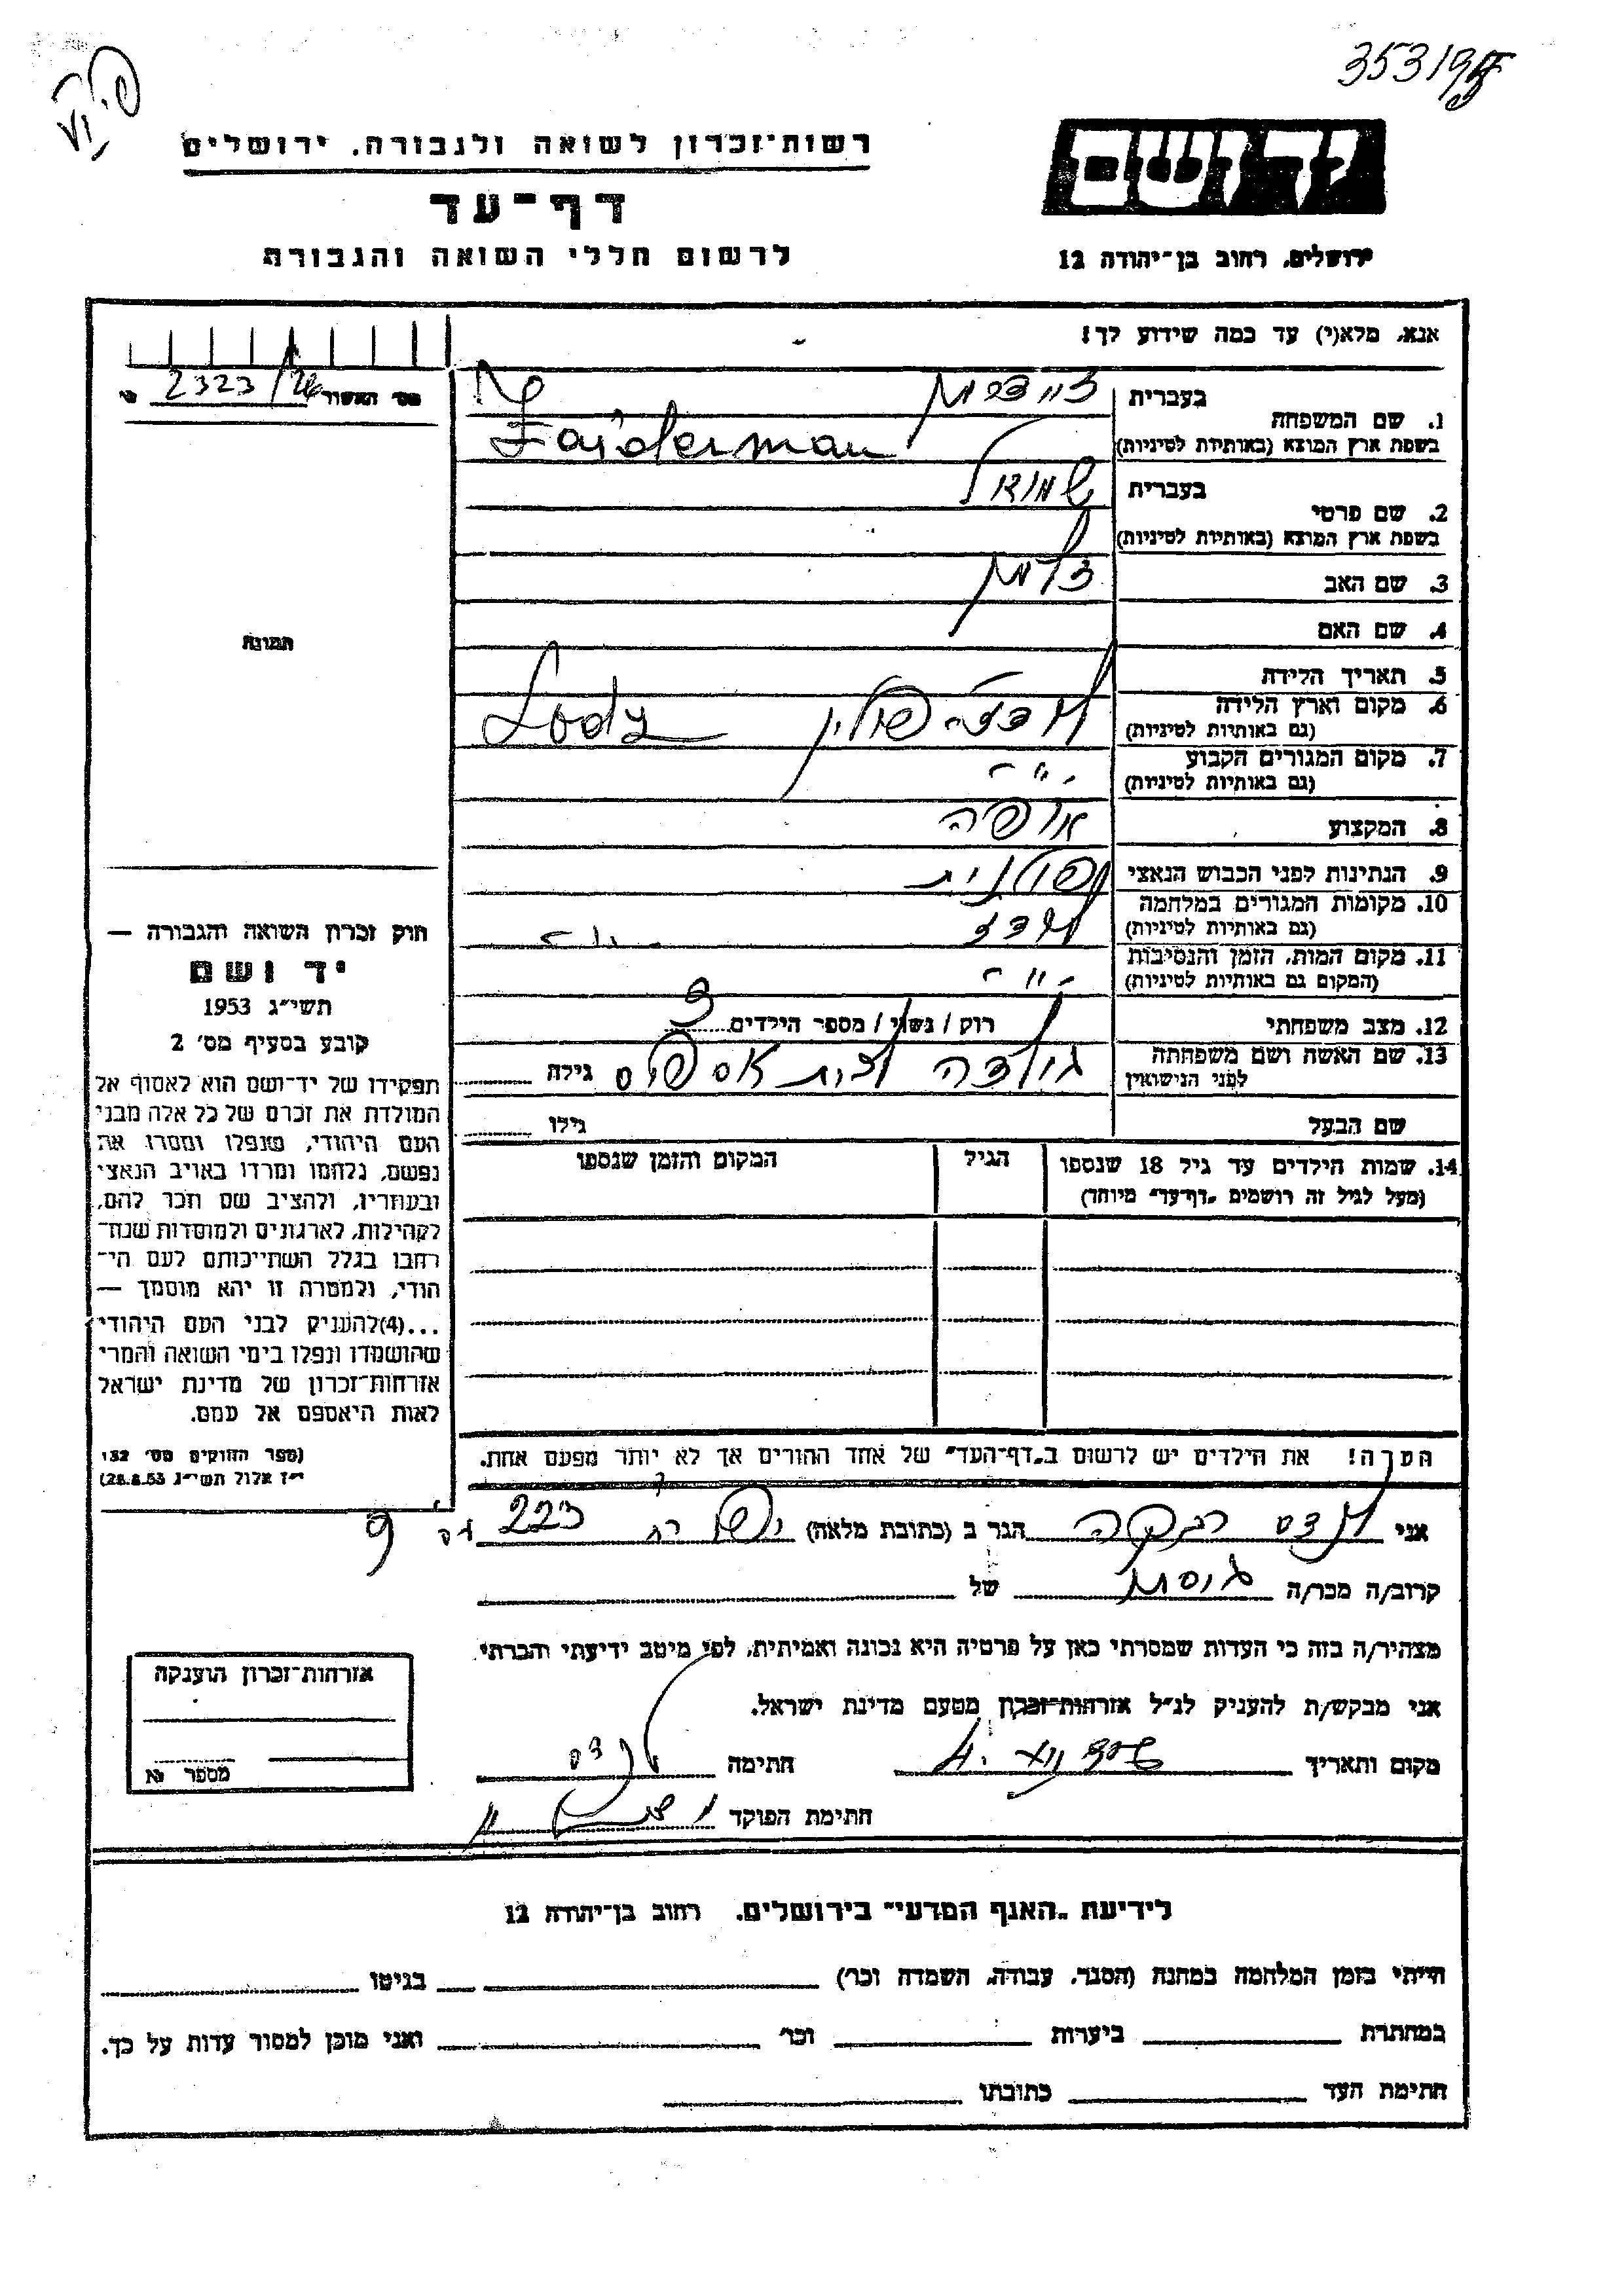 353198
רשות־זכרון לשואה ולגבורה, ירושלים
יד ושם
דף־עד
לרשום חללי השואה והגבורה
ירושלים, רחוב בן־יהודה 12
אנא, מלא(י) עד כמה שידוע לך!
מס' האשור 2323/26
1. שם המשפחה
בעברית זיידרמן
בשפת ארץ המוצא (באותיות לטיניות) Zaiderman
2. שם פרטי
בעברית שמואל
בשפת ארץ המוצא (באותיות לטיניות)
3. שם האב זלמן
4. שם האם
5. תאריך הלידה
6. מקום וארץ הלידה
(גם באותיות לטיניות) לודז' פולין Lodz
7. מקום המגורים הקבוע
(גם באותיות לטיניות) - " -
8. המקצוע אופה
9. הנתינות לפני הכבוש הנאצי פולנית
10. מקומות המגורים במלחמה
(גם באותיות לטיניות) לודז - " -
11. מקום המות, הזמן והנסיבות
(המקום גם באותיות לטיניות) - " -
12. מצב משפחתי רוק / נשוי / מספר הילדים 3
13. שם האשה ושם משפחתה
לפני הנישואין גולדה לבית גילה
שם הבעל גילו
14. שמות הילדים עד גיל 18 שנספו
(מעל לגיל זה רושמים "דף־עד" מיוחד)
הגיל
המקום והזמן שנספו
תמונה
חוק זכרון השואה והגבורה —
יד ושם
תשי"ג 1953
קובע בסעיף מס' 2
תפקידו של יד־ושם הוא לאסוף אל
המולדת את זכרם של כל אלה מבני
העם היהודי, שנפלו ומסרו את
נפשם, נלחמו ומרדו באויב הנאצי
ובעוזריו, ולהציב שם וזכר להם,
לקהילות, לארגונים ולמוסדות שנח־
רבו בגלל השתייכותם לעם הי־
הודי, ולמטרה זו יהא מוסמך —
...(4)להעניק לבני העם היהודי
שהושמדו ונפלו בימי השואה והמרי
אזרחות־זכרון של מדינת ישראל
לאות היאספם אל עמם.
(ספר החוקים מס' 132
י"ז אלול תשי"ג 28.8.53)
הערה! את הילדים יש לרשום ב"דף־העד" של אחד ההורים אך לא יותר מפעם אחת.
אני לנדס רבקה הגר ב (כתובת מלאה) יפו רח 223 9
קרוב/ה מכר/ה גיסתו של
מצהיר/ה בזה כי העדות שמסרתי כאן על פרטיה היא נכונה ואמיתית, לפי מיטב ידיעתי והכרתי
אני מבקש/ת להעניק לנ"ל אזרחות־זכרון מטעם מדינת ישראל.
מקום ותאריך חתימה לנדס
חתימת הפוקד
אזרחות־זכרון הוענקה
מספר
לידיעת "האגף המדעי" בירושלים, רחוב בן־יהודה 12
הייתי בזמן המלחמה במחנה (הסגר, עבודה, השמדה וכו') בגיטו
במחתרת ביערות וכו' ואני מוכן למסור עדות על כך.
חתימת העד כתובתו